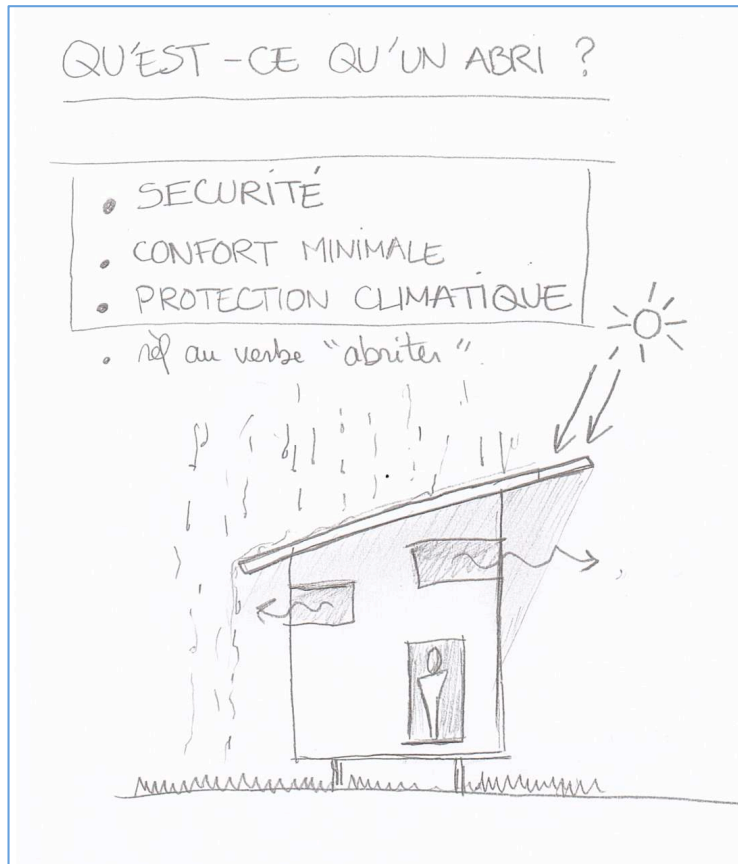 QU'EST-CE QU'UN ABRI ?
• SECURITÉ
• CONFORT MINIMALE
• PROTECTION CLIMATIQUE
• réf au verbe "abriter".